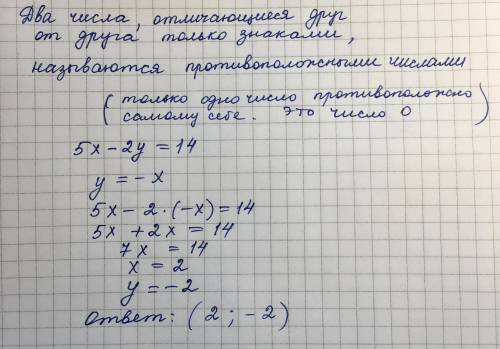 Два числа, отличающиеся друг
от друга только знаками,
называются противоположными числами
(только одно число противоположно
самому себе. Это число 0)
5x - 2y = 14
y = -x
5x - 2·(-x) = 14
5x + 2x = 14
7x = 14
x = 2
y = -2
Ответ: (2; -2)